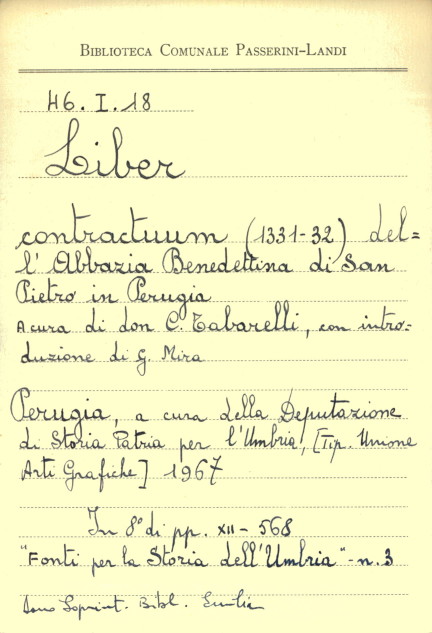 BIBLIOTECA COMUNALE PASSERINI-LANDI
46. I. 18
Liber
contractuum (1331-32) del=
l' Abbazia Benedettina di San
Pietro in Perugia
A cura di don C. Tabarelli, con intro=
duzione di G. Mira
Perugia, a cura della Deputazione
di Storia Patria per l'Umbria, [Tip. Unione
Arti Grafiche] 1967
In 8° di pp. XII - 568
"Fonti per la Storia dell'Umbria" - n. 3
Dono Soprint. Bibl. Emilia